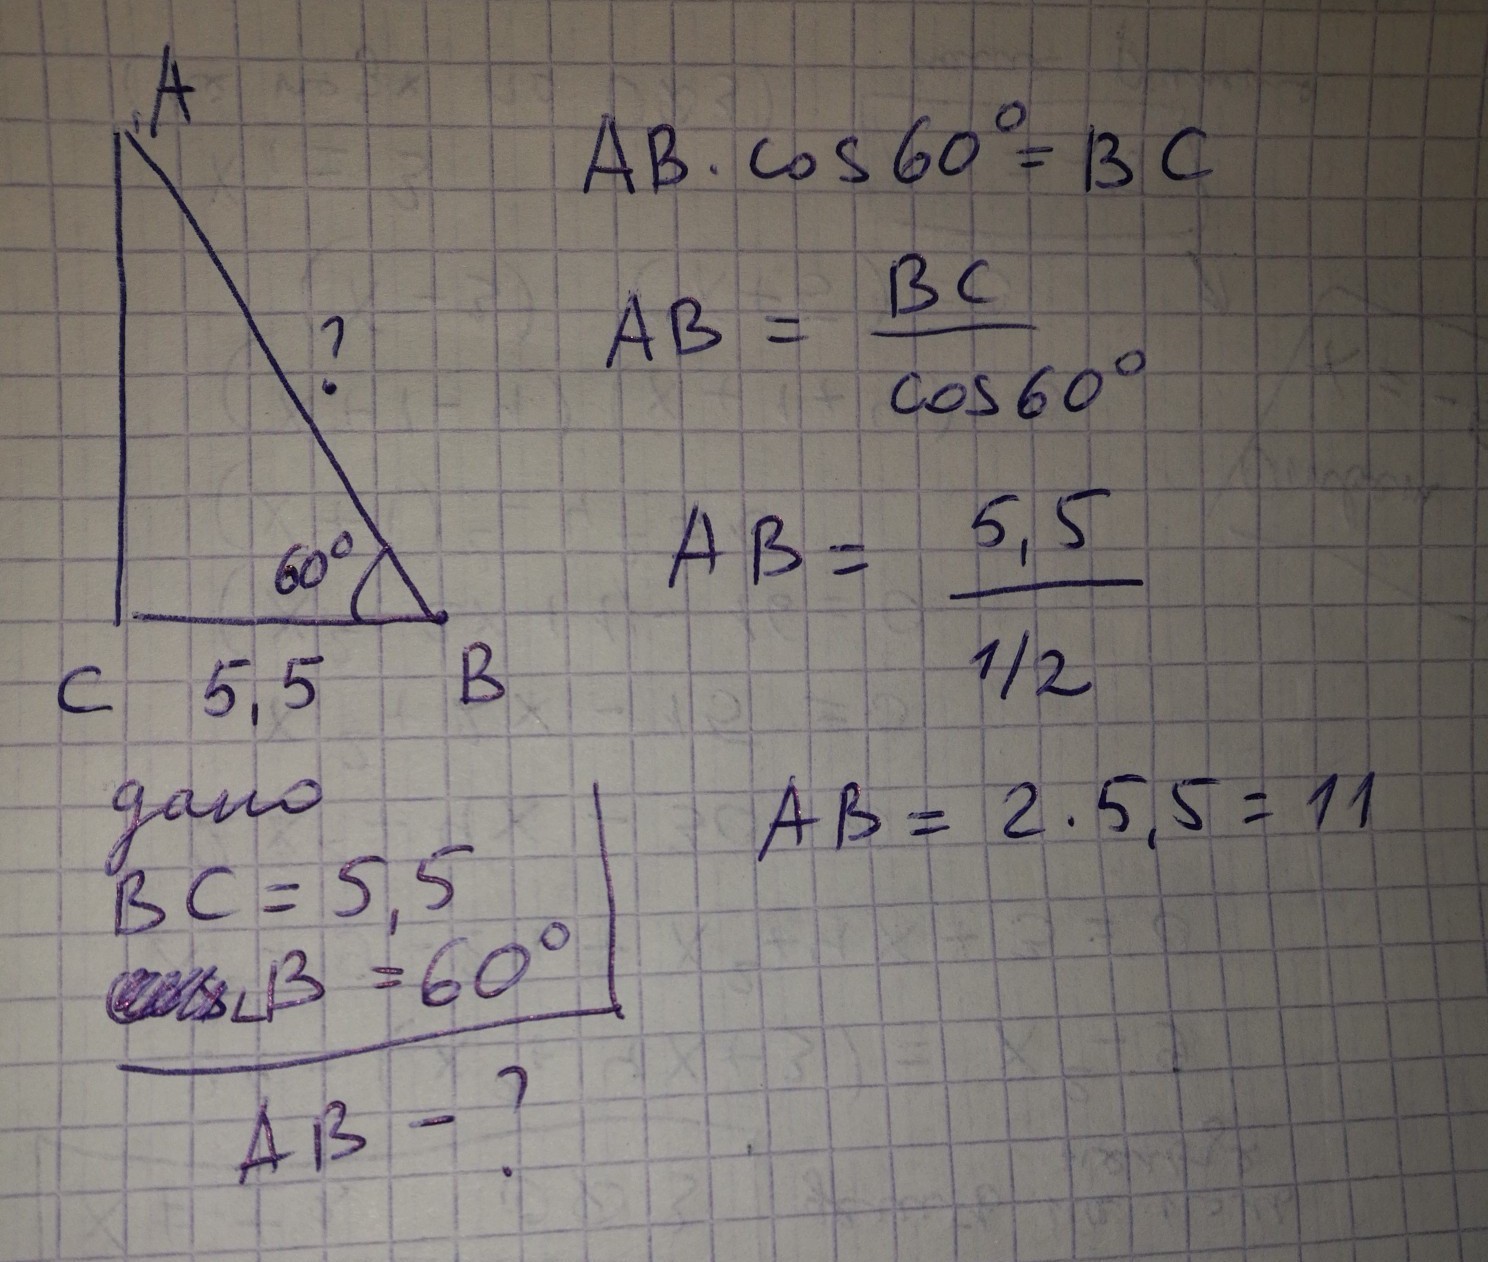 A
?
60°
C 5,5 B
дано
BC = 5,5
∟B = 60°
AB - ?
AB · cos 60° = BC
AB = BC / cos 60°
AB = 5,5 / 1/2
AB = 2 · 5,5 = 11